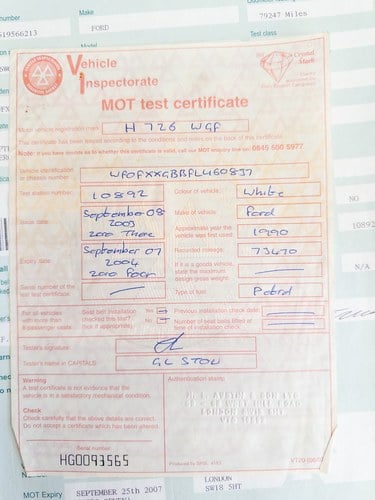 Make
79247 Miles
519566213
FORD
Test class
Vehicle
Inspectorate
Crystal
Mark
MOT test certificate
Motor vehicle registration mark
H 726 WGF
This certificate has been issued according to the conditions and notes on the back of this certificate
Note: If you have doubts as to whether this certificate is valid, call our MOT enquiry line on: 0845 600 5977
Vehicle identification
or chassis number
WF0FXXGBBFLU60837
Test station number
10892
Colour of vehicle
White
Issue date
September 08
2003
zero Three
Make of vehicle
Ford
Approximate year the
vehicle was first used
1990
Expiry date
September 07
2004
zero Four
Recorded mileage
73470
If it is a goods vehicle,
state the maximum
design gross weight
Serial number of the
last test certificate
Type of fuel
Petrol
For all vehicles
with more than
8 passenger seats
Seat belt installation
checked this test?
(tick if appropriate)
Yes
No
Previous installation check date
Number of seat belts fitted at
time of installation check
Tester's signature
Tester's name in CAPITALS
Warning
A test certificate is not evidence that the
vehicle is in a satisfactory mechanical condition.
Check
Check carefully that the above details are correct.
Do not accept a certificate which has been altered.
Authentication stamp
Serial number
HG0093565
10892
MOT Expiry
SEPTEMBER 25th 2007
LONDON
SW18 5HT